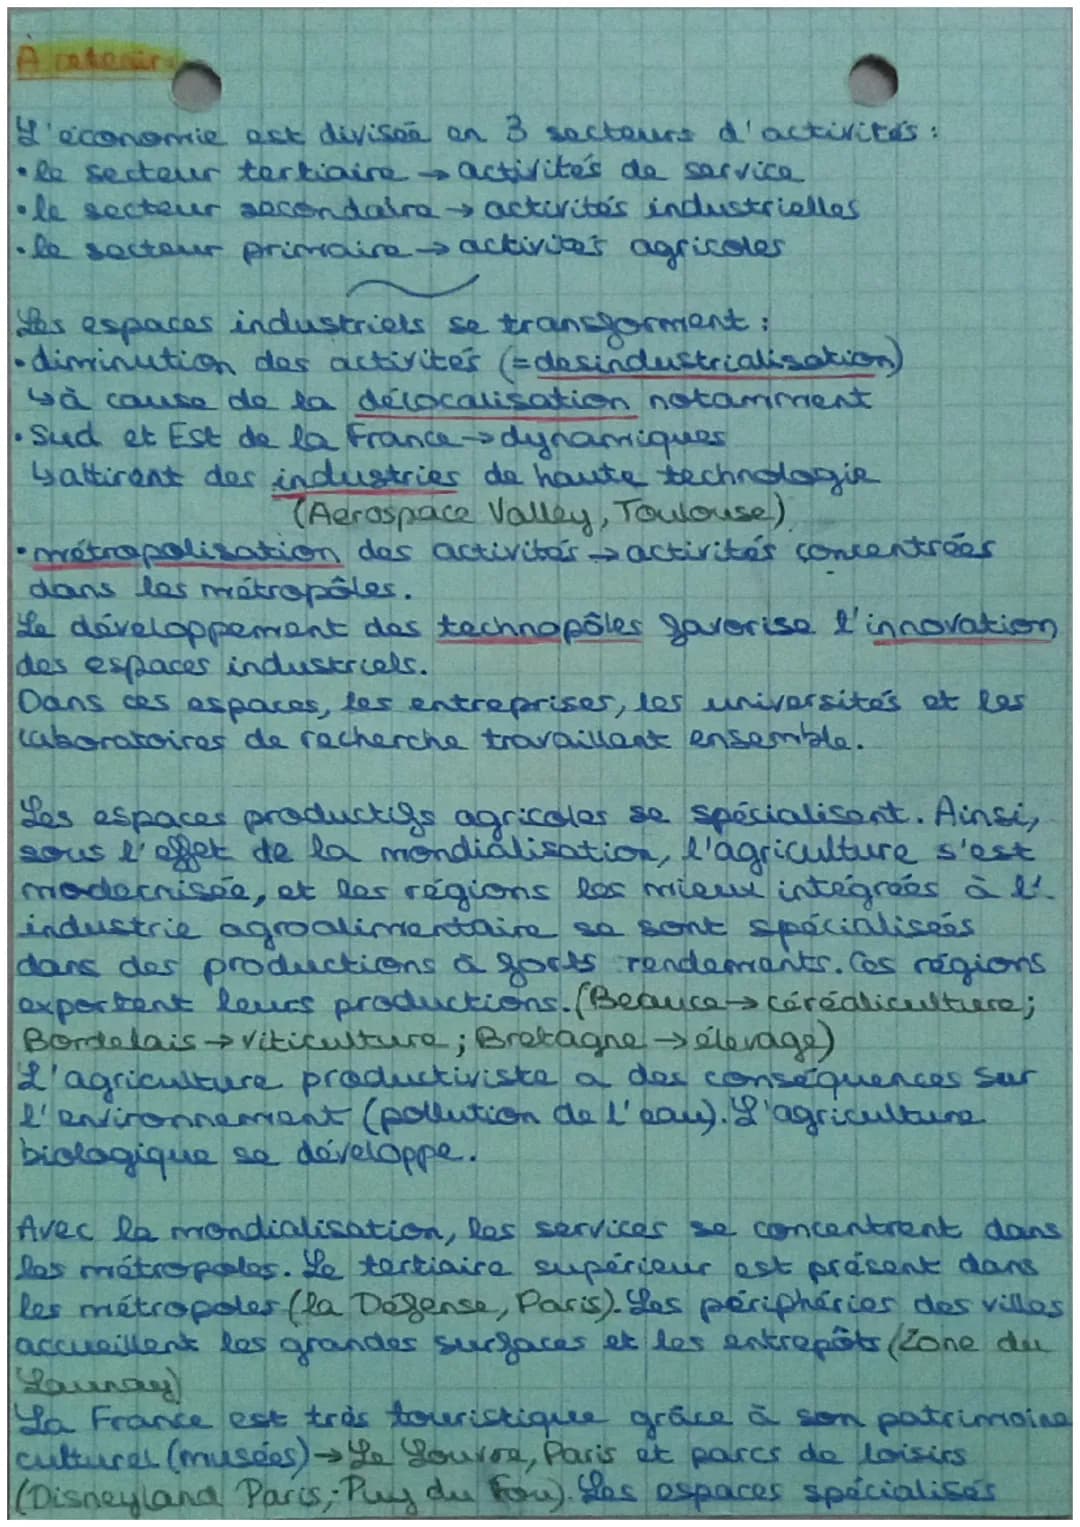 À retenir
L'économie est divisée en 3 secteurs d'activités :
• le secteur tertiaire → activités de service
• le secteur secondaire → activités industrielles
• le secteur primaire → activités agricoles
Les espaces industriels se transforment :
• diminution des activités (= desindustrialisation)
↳ à cause de la délocalisation notamment
• Sud et Est de la France → dynamiques
↳ attirent des industries de haute technologie
(Aerospace Valley, Toulouse)
• métropolisation des activités → activités concentrées
dans les métropôles.
Le développement des technopôles favorise l'innovation
des espaces industriels.
Dans ces espaces, les entreprises, les universités et les
laboratoires de recherche travaillent ensemble.
Les espaces productifs agricoles se spécialisent. Ainsi,
sous l'effet de la mondialisation, l'agriculture s'est
modernisée, et les régions les mieux intégrées à l'
industrie agroalimentaire se sont spécialisées
dans des productions à forts rendements. Ces régions
exportent leurs productions. (Beauce → céréaliculture ;
Bordelais → viticulture ; Bretagne → élevage)
L'agriculture productiviste a des conséquences sur
l'environnement (pollution de l'eau). L'agriculture
biologique se développe.
Avec la mondialisation, les services se concentrent dans
les métropoles. Le tertiaire supérieur est présent dans
les métropoles (la Défense, Paris). Les périphéries des villes
accueillent les grandes surfaces et les entrepôts (Zone du
Launay)
La France est très touristique grâce à son patrimoine
culturel (musées) → Le Louvre, Paris et parcs de loisirs
(Disneyland Paris, Puy du Fou). Les espaces spécialisés